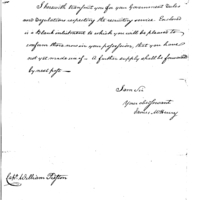 I herewith transmit you for your Government rules
and regulations respecting the recruiting service. Enclosed
is a Blank inlistment to which you will be pleased to
conform those now in your possession, that you have
not yet made use of. A further supply shall be forwarded
by next post.
I am Sir
Your obt Servant
James McHenry
Capt. William